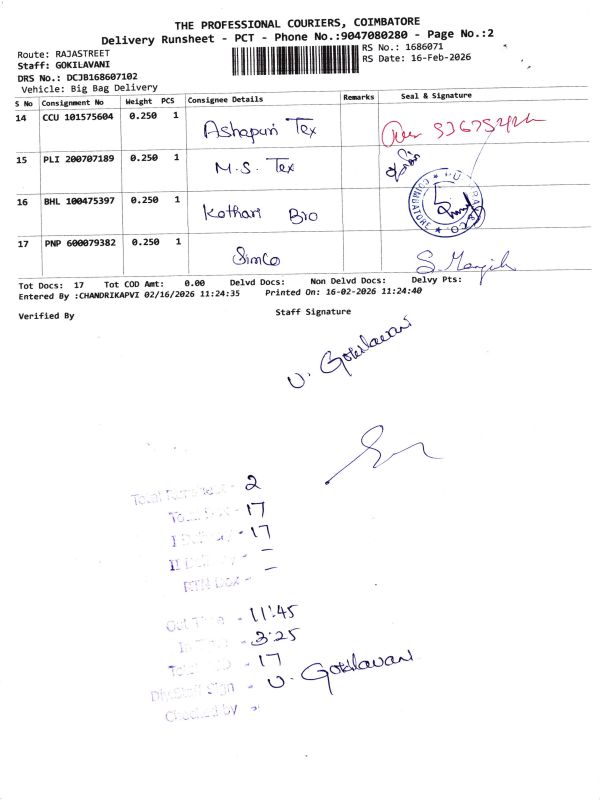 THE PROFESSIONAL COURIERS, COIMBATORE
Delivery Runsheet - PCT - Phone No.:9047080280 - Page No.:2
Route: RAJASTREET
RS No.: 1686071
Staff: GOKILAVANI
RS Date: 16-Feb-2026
DRS No.: DCJB168607102
Vehicle: Big Bag Delivery
S No Consignment No Weight PCS Consignee Details Remarks Seal & Signature
14 CCU 101575604 0.250 1 Ashapuri Tex
15 PLI 200707189 0.250 1 M.S. Tex
16 BHL 100475397 0.250 1 Kothari Bio COIMBATORE
17 PNP 600079382 0.250 1 Simco
Tot Docs: 17 Tot COD Amt: 0.00 Delvd Docs: Non Delvd Docs: Delvy Pts:
Entered By :CHANDRIKAPVI 02/16/2026 11:24:35 Printed On: 16-02-2026 11:24:40
Verified By Staff Signature
V. Gokilavani
2
17
I - 17
II -
RTN Dox -
Out Time - 11:45
In - 3:25
Total - 17
Dly.Staff Sign - V. Gokilavani
Checked by -